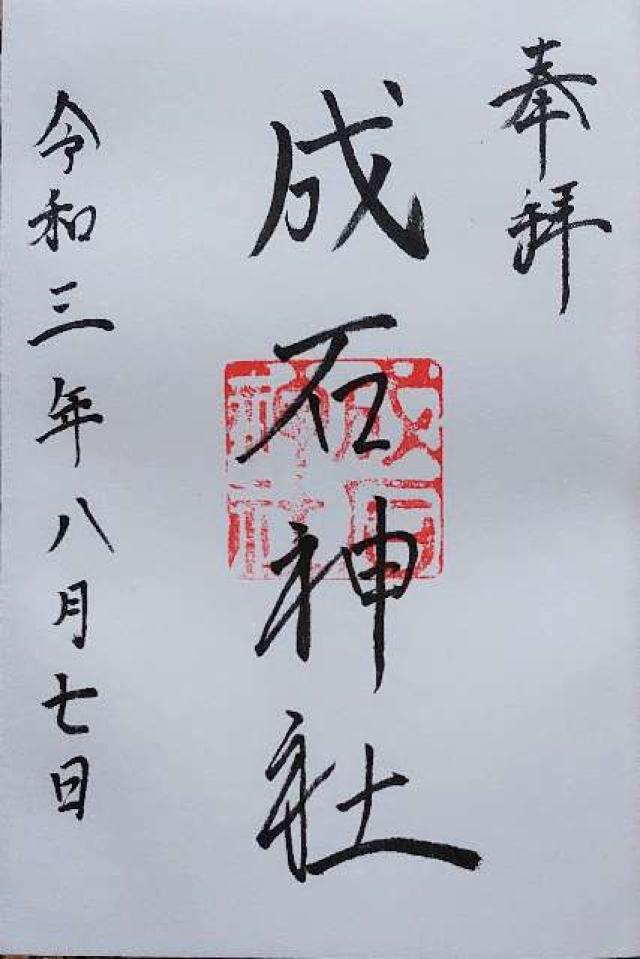 奉拝
成石神社
成石
神社
令和三年八月七日